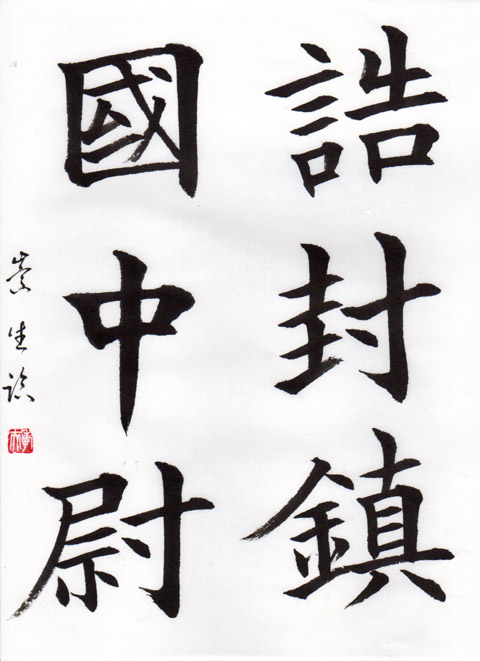 誥封鎮
國中尉